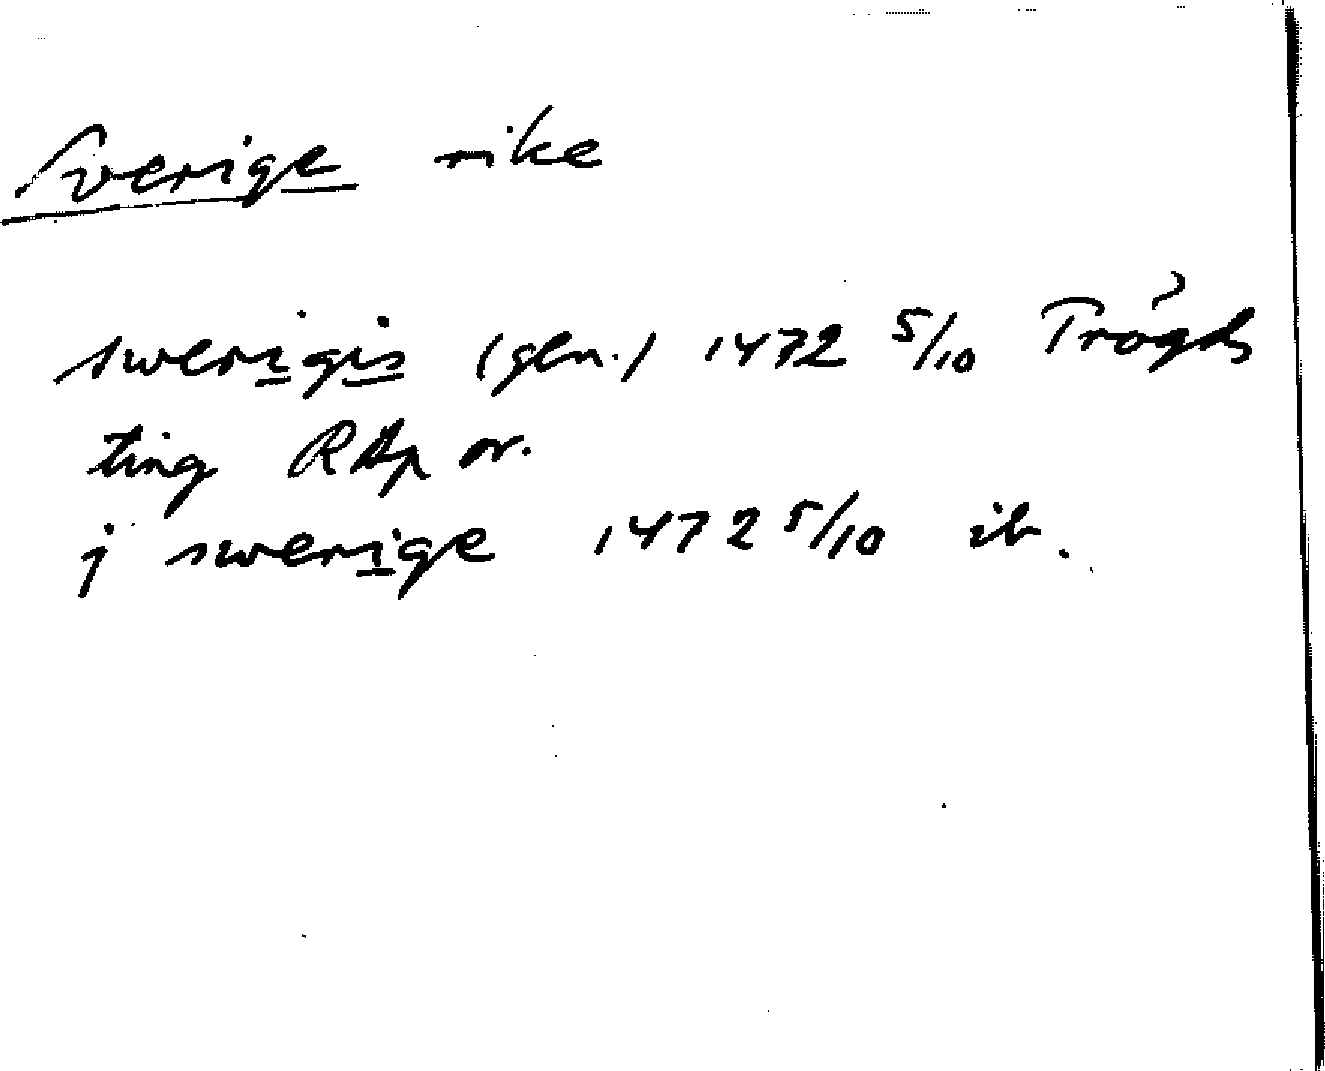 Sverige rike
swerigis (gen.) 1472 5/10 Trögds
ting RAp or.
j swerige 1472 5/10 ib.